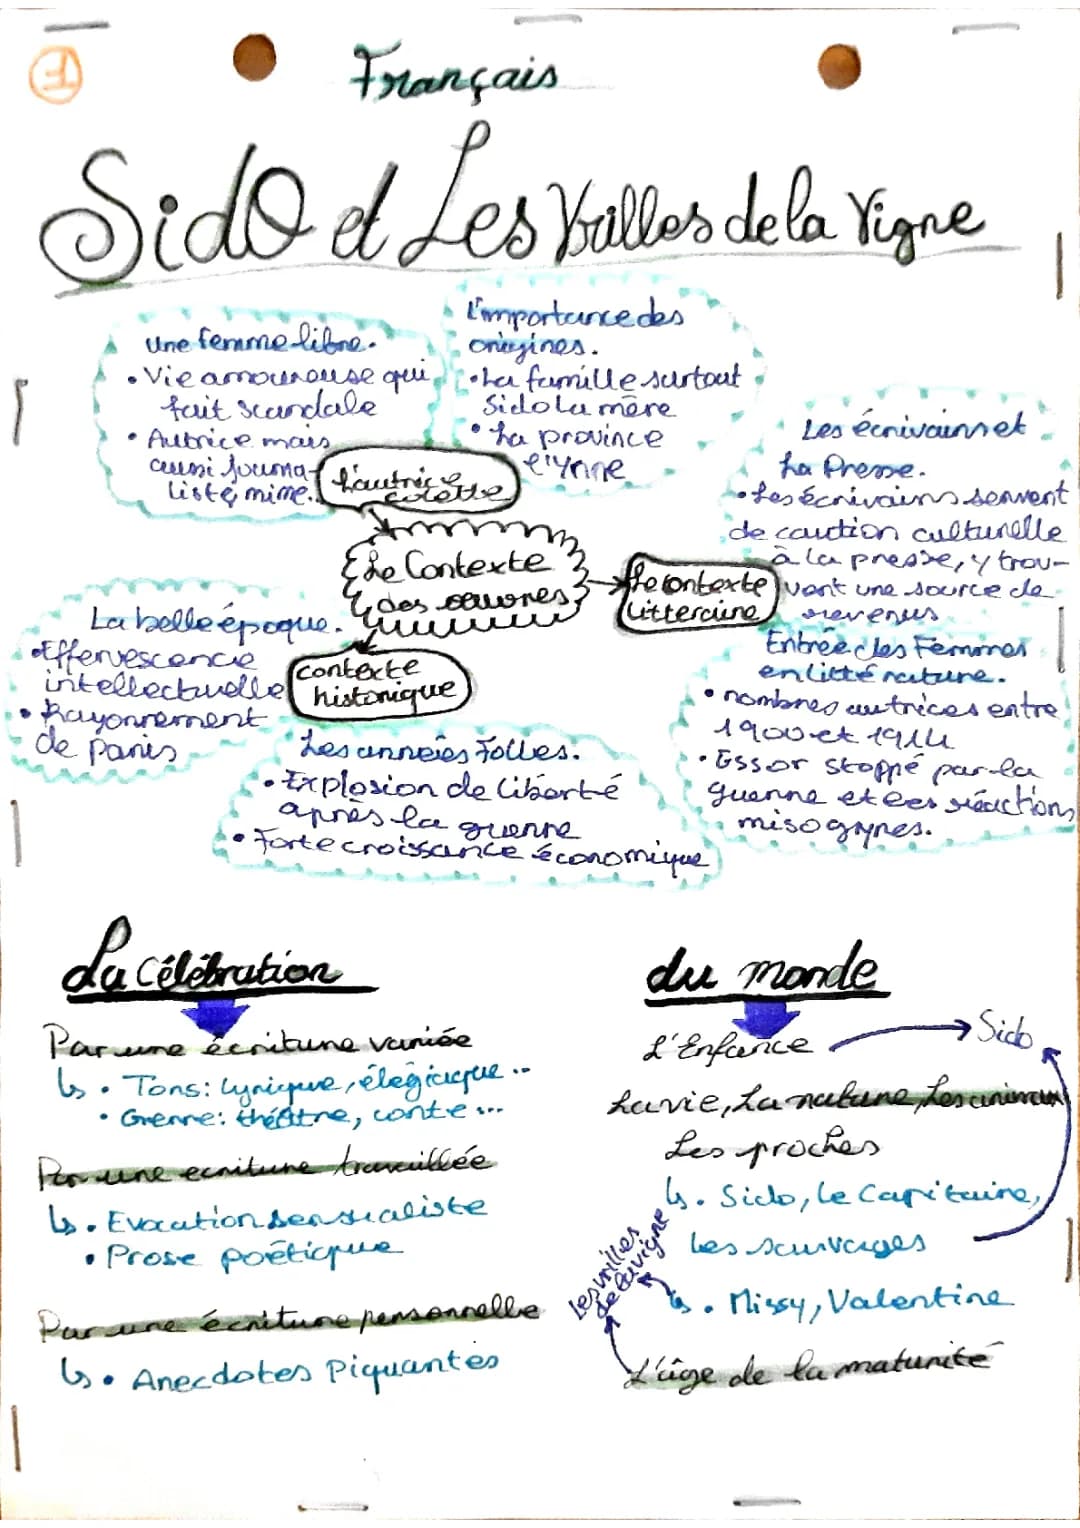 F
Français
Sido et Les Vrilles de la Vigne
Une femme libre.
• Vie amoureuse qui
fait scandale
• Autrice mais
aussi journa-
liste, mime.
L'importance des
origines.
• La famille surtout
Sido la mère
• La province
l'Ynne
L'autrice
colette
Le Contexte
des œuvres
Le contexte
litteraire
Les écrivains et
La Presse.
• Les écrivains servent
de caution culturelle
à la presse, y trou-
vent une source de
revenus
La belle époque.
• Effervescence
intellectuelle
• Rayonnement
de Paris
contexte
historique
Entrée des Femmes
en littérature.
• nombres autrices entre
1900 et 1914
• Essor stoppé par la
guerre et les réactions
misogynes.
Les années Folles.
• Explosion de liberté
après la guerre
• Forte croissance économique
La célébration
Par une écriture variée
↳ • Tons: lyrique, élégiaque...
• Genre: théâtre, conte...
Par une ecriture travaillée
↳ • Evocation sensualiste
• Prose poétique
Par une écriture personnelle
↳ • Anecdotes Piquantes
du monde
L'Enfance → Sido
La vie, La nature, Les animaux
Les proches
↳ • Sido, Le Capitaine,
Les sauvages
Les vrilles
de la vigne
↳ • Missy, Valentine
L'âge de la maturité